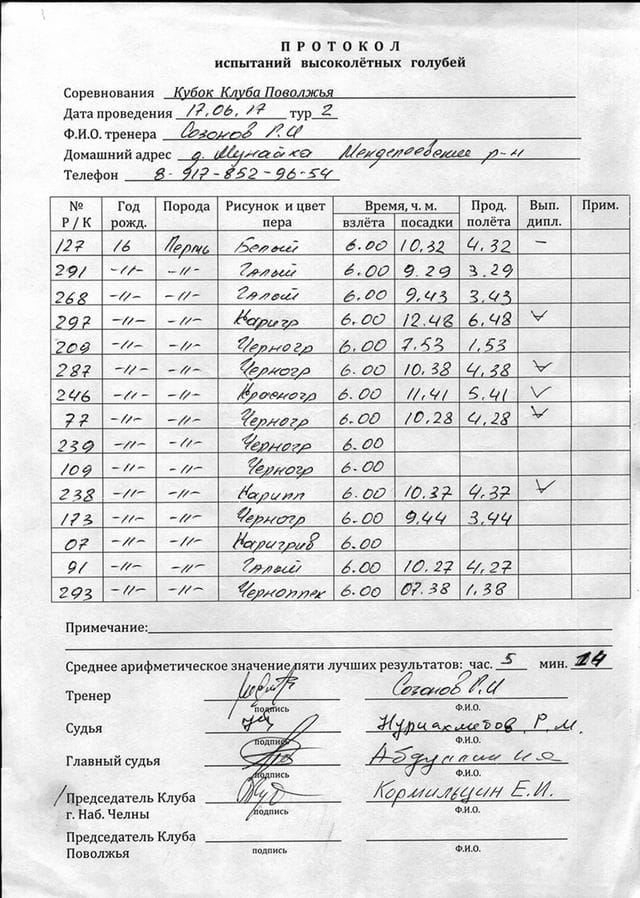 ПРОТОКОЛ
испытаний высоколётных голубей
Соревнования Кубок Клуба Поволжья
Дата проведения 17.06.17 тур 2
Ф.И.О. тренера Созонов Р.И
Домашний адрес д. Мунайка Менделеевский р-н
Телефон 8-917-852-96-54
№ Р / К Год рожд. Порода Рисунок и цвет пера Время, ч. м. взлёта посадки Прод. полёта Вып. дипл. Прим.
127 16 Пермь Белый 6.00 10.32 4.32 –
291 -//- -//- Галый 6.00 9.29 3.29
268 -//- -//- Галый 6.00 9.43 3.43
297 -//- -//- Наригр 6.00 12.48 6.48 ✓
209 -//- -//- Черногр 6.00 7.53 1.53
287 -//- -//- Черногр 6.00 10.38 4.38 ✓
246 -//- -//- Красногр 6.00 11.41 5.41 ✓
77 -//- -//- Черногр 6.00 10.28 4.28 ✓
239 -//- -//- Черногр 6.00
109 -//- -//- Черногр 6.00
238 -//- -//- Нарипп 6.00 10.37 4.37 ✓
173 -//- -//- Черногр 6.00 9.44 3.44
07 -//- -//- Наригрив 6.00
91 -//- -//- Галый 6.00 10.27 4.27
293 -//- -//- Черноппек 6.00 07.38 1.38
Примечание:
Среднее арифметическое значение пяти лучших результатов: час. 5 мин. 14
Тренер Созонов Р.И
подпись Ф.И.О.
Судья Нуриахметов Р.М.
подпись Ф.И.О.
Главный судья
подпись Ф.И.О.
Председатель Клуба Кормильцин Е.И.
г. Наб. Челны подпись Ф.И.О.
Председатель Клуба
Поволжья подпись Ф.И.О.